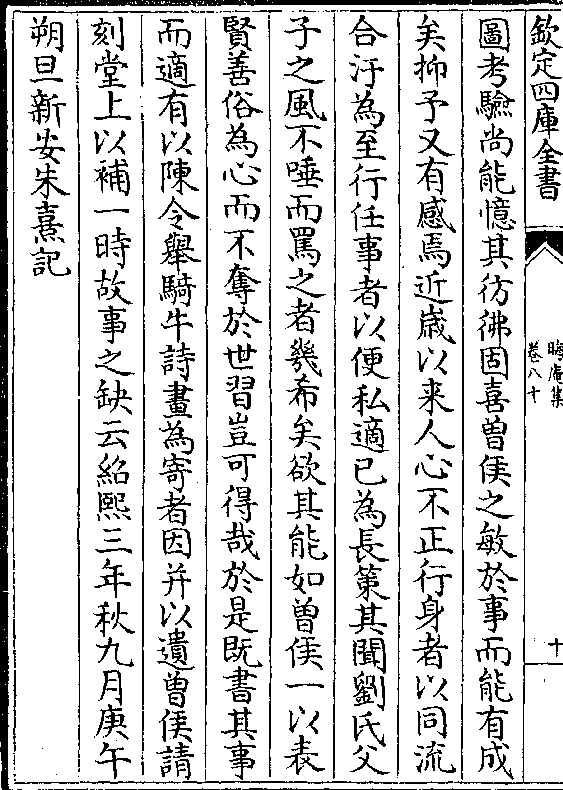 欽定四庫全書
晦庵集
卷八十
十
圖考驗尚能憶其彷彿固喜曽侯之敏於事而能有成
矣抑予又有感焉近嵗以来人心不正行身者以同流
合汙為至行任事者以便私適已為長策其聞劉氏父
子之風不唾而罵之者幾希矣欲其能如曽侯一以表
賢善俗為心而不奪於世習豈可得哉於是既書其事
而適有以陳令舉騎牛詩畫為寄者因并以遺曽侯請
刻堂上以補一時故事之缺云紹熙三年秋九月庚午
朔旦新安朱熹記